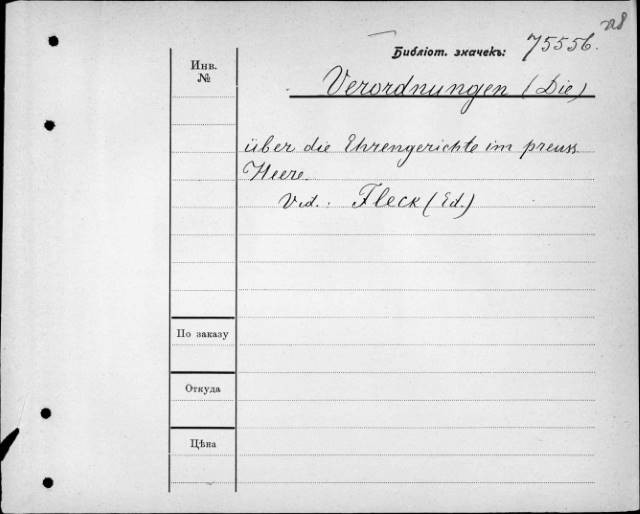 Библіот. значекъ: 75556.
Инв. №
Verordnungen (Die)
über die Ehrengerichte im preuss.
Heere.
Vid.: Fleck (Ed.)
По заказу
Откуда
Цѣна